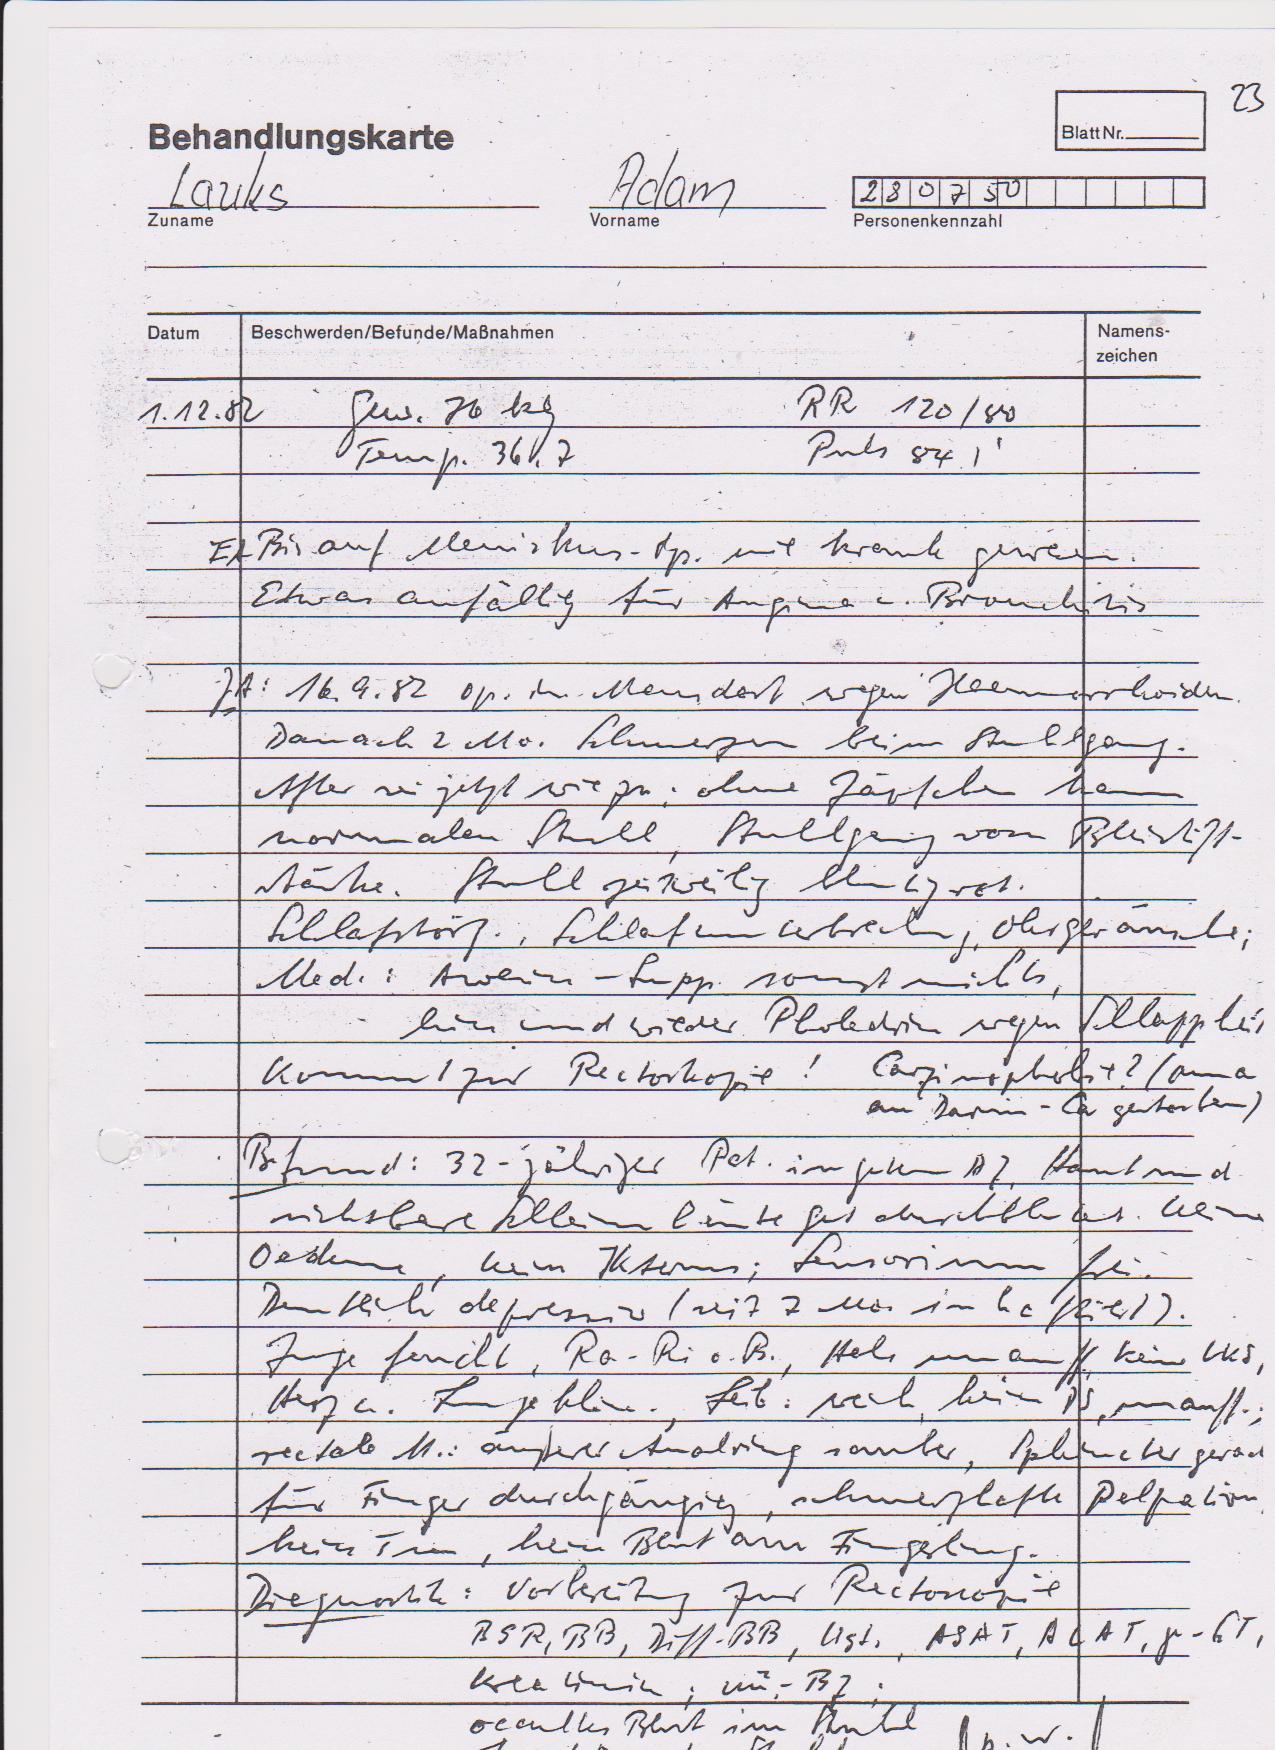 23
Behandlungskarte
Blatt Nr.
Lauks Adam 280750
Zuname Vorname Personenkennzahl
Datum Beschwerden/Befunde/Maßnahmen Namens-
zeichen
1.12.82 Gew. 76 kg RR 120/80
Temp. 36,7 Puls 84 1'
EA Bis auf Meniskus-Op. nie krank gewesen.
Etwas anfällig für Angina u. Bronchitis
JA: 16.9.82 op. in Meusdorf wegen Haemorrhoiden.
Danach 2 Mo. Schmerzen beim Stuhlgang.
After sei jetzt wie zu; ohne Zäpfchen kaum
normalen Stuhl, Stuhlgang von Bleistift-
stärke. Stuhl zeitweilig blutig rot.
Schlafstörg., Schlafunterbrechung, Ohrgeräusche;
Med.: -Supp. sonst nichts,
hin und wieder Pholedrin wegen Schlappheit
Kommt zur Rectoskopie! Carzinophobie? (Oma
an Darm-Ca gestorben)
Befund: 32-jähriger Pat. in gutem AZ, Haut und
sichtbare Schleimhäute gut durchblutet. Keine
Oedeme, kein Ikterus; Sensorium frei.
Deutlich depressiv (seit 7 Mo. in ).
Zunge feucht, Ra-Ri o.B., Hals unauff, keine LKS,
Herz u. Lunge klin., Leib: weich, kein DS, unauff.;
rectale U.: äußerer Analring sauber, Sphincter gerade
für Finger durchgängig, schmerzhafte Palpation,
kein Tu, kein Blut am Fingerling.
Diagnostik: Vorbereitung zur Rectoskopie
BSR, BB, Diff-BB, Ust., ASAT, ALAT, γ-GT,
Kreatinin, nü.-BZ,
occultes Blut im Stuhl